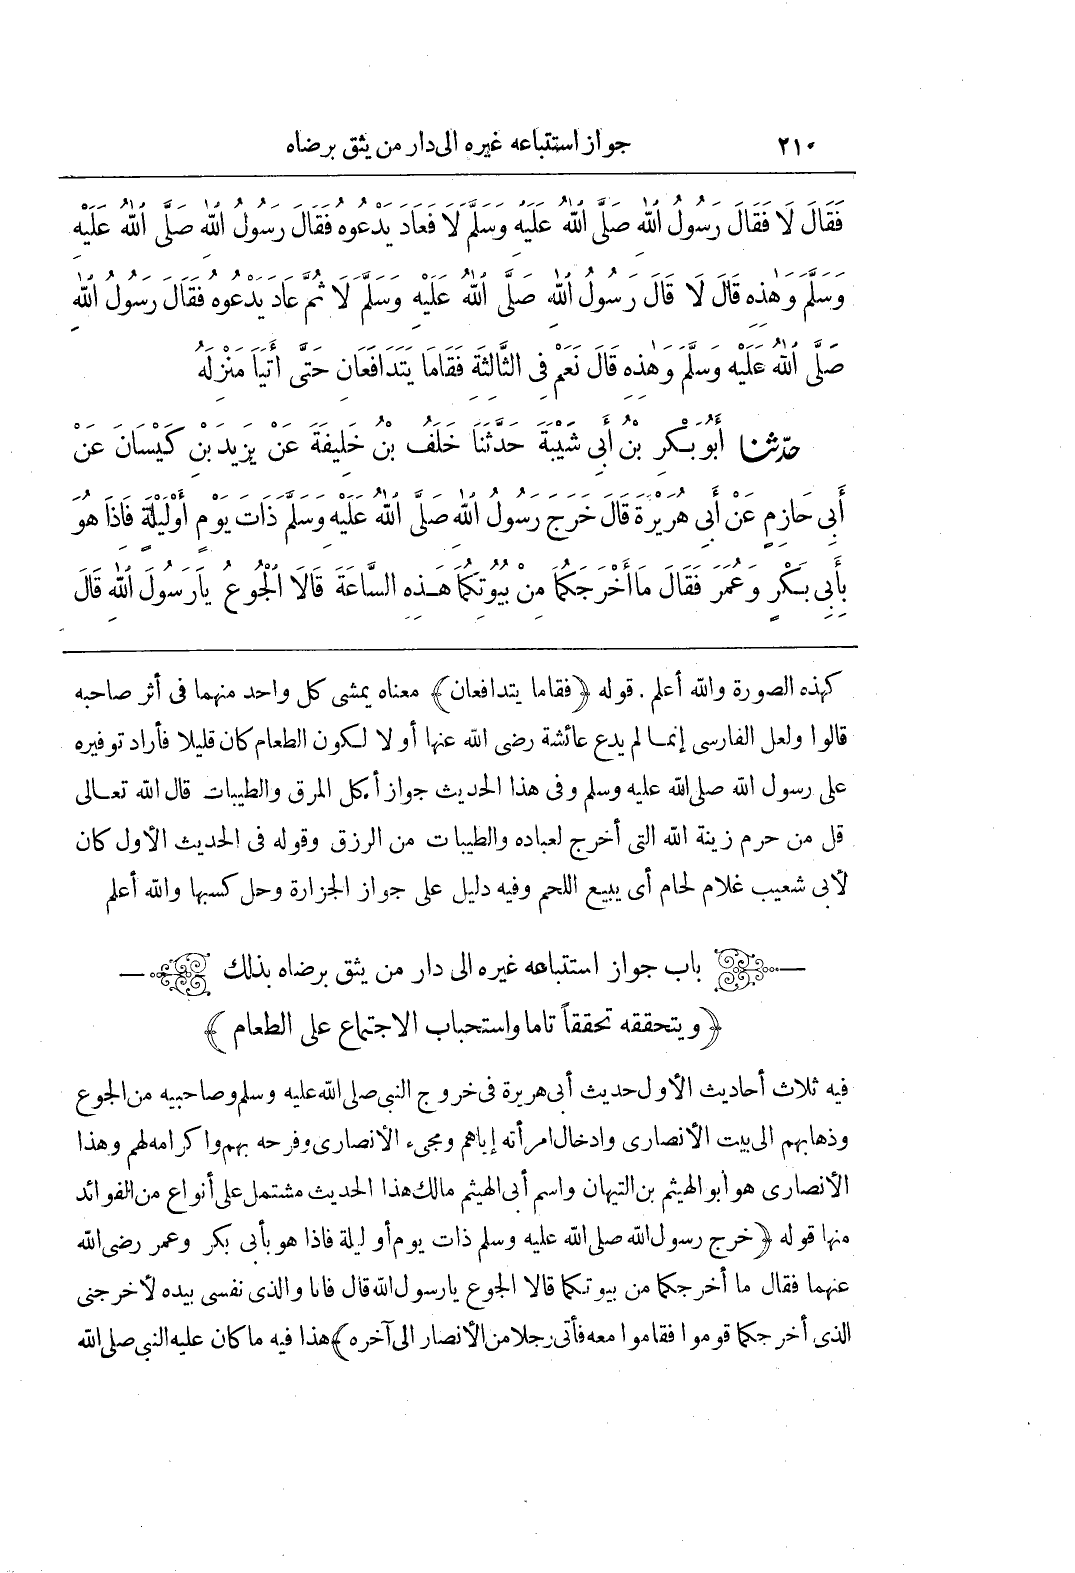 ٢١٠ جواز استتباعه غيره الى دار من يثق برضاه
فَقَالَ لَا فَقَالَ رَسُولُ اللهِ صَلَّى اللهُ عَلَيْهِ وَسَلَّمَ لَا فَعَادَ يَدْعُوهُ فَقَالَ رَسُولُ اللهِ صَلَّى اللهُ عَلَيْهِ
وَسَلَّمَ وَهٰذِهِ قَالَ لَا قَالَ رَسُولُ اللهِ صَلَّى اللهُ عَلَيْهِ وَسَلَّمَ لَا ثُمَّ عَادَ يَدْعُوهُ فَقَالَ رَسُولُ اللهِ
صَلَّى اللهُ عَلَيْهِ وَسَلَّمَ وَهٰذِهِ قَالَ نَعَمْ فِى الثَّالِثَةِ فَقَامَا يَتَدَافَعَانِ حَتَّى أَتَيَا مَنْزِلَهُ
حدّثنا أَبُو بَكْرِ بْنُ أَبِى شَيْبَةَ حَدَّثَنَا خَلَفُ بْنُ خَلِيفَةَ عَنْ يَزِيدَ بْنِ كَيْسَانَ عَنْ
أَبِى حَازِمٍ عَنْ أَبِى هُرَيْرَةَ قَالَ خَرَجَ رَسُولُ اللهِ صَلَّى اللهُ عَلَيْهِ وَسَلَّمَ ذَاتَ يَوْمٍ أَوْ لَيْلَةٍ فَاذَا هُوَ
بِأَبِى بَكْرٍ وَعُمَرَ فَقَالَ مَا أَخْرَجَكُمَا مِنْ بُيُوتِكُمَا هَذِهِ السَّاعَةَ قَالَا الْجُوعُ يَا رَسُولَ اللهِ قَالَ
كهذه الصورة والله أعلم . قوله ﴿فقاما يتدافعان﴾ معناه يمشى كل واحد منهما فى أثر صاحبه
قالوا ولعل الفارسى إنما لم يدع عائشة رضى الله عنها أو لا لكون الطعام كان قليلا فأراد توفيره
على رسول الله صلى الله عليه وسلم وفى هذا الحديث جواز أكل المرق والطيبات قال الله تعالى
قل من حرم زينة الله التى أخرج لعباده والطيبات من الرزق وقوله فى الحديث الأول كان
لأبى شعيب غلام لحام أى يبيع اللحم وفيه دليل على جواز الجزارة وحل كسبها والله أعلم
باب جواز استتباعه غيره الى دار من يثق برضاه بذلك
﴿ويتحققه تحققاً تاما واستحباب الاجتماع على الطعام﴾
فيه ثلاث أحاديث الأول حديث أبى هريرة فى خروج النبى صلى الله عليه وسلم وصاحبيه من الجوع
وذهابهم الى بيت الأنصارى وادخال امرأته إياهم ومجىء الأنصارى وفرحه بهم واكرامه لهم وهذا
الأنصارى هو أبو الهيثم بن التيهان واسم أبى الهيثم مالك هذا الحديث مشتمل على أنواع من الفوائد
منها قوله ﴿خرج رسول الله صلى الله عليه وسلم ذات يوم أو ليلة فاذا هو بأبى بكر وعمر رضى الله
عنهما فقال ما أخرجكما من بيوتكما قالا الجوع يا رسول الله قال فانا والذى نفسى بيده لأخرجنى
الذى أخرجكما قوموا فقاموا معه فأتى رجلا من الأنصار الى آخره﴾ هذا فيه ما كان عليه النبى صلى الله